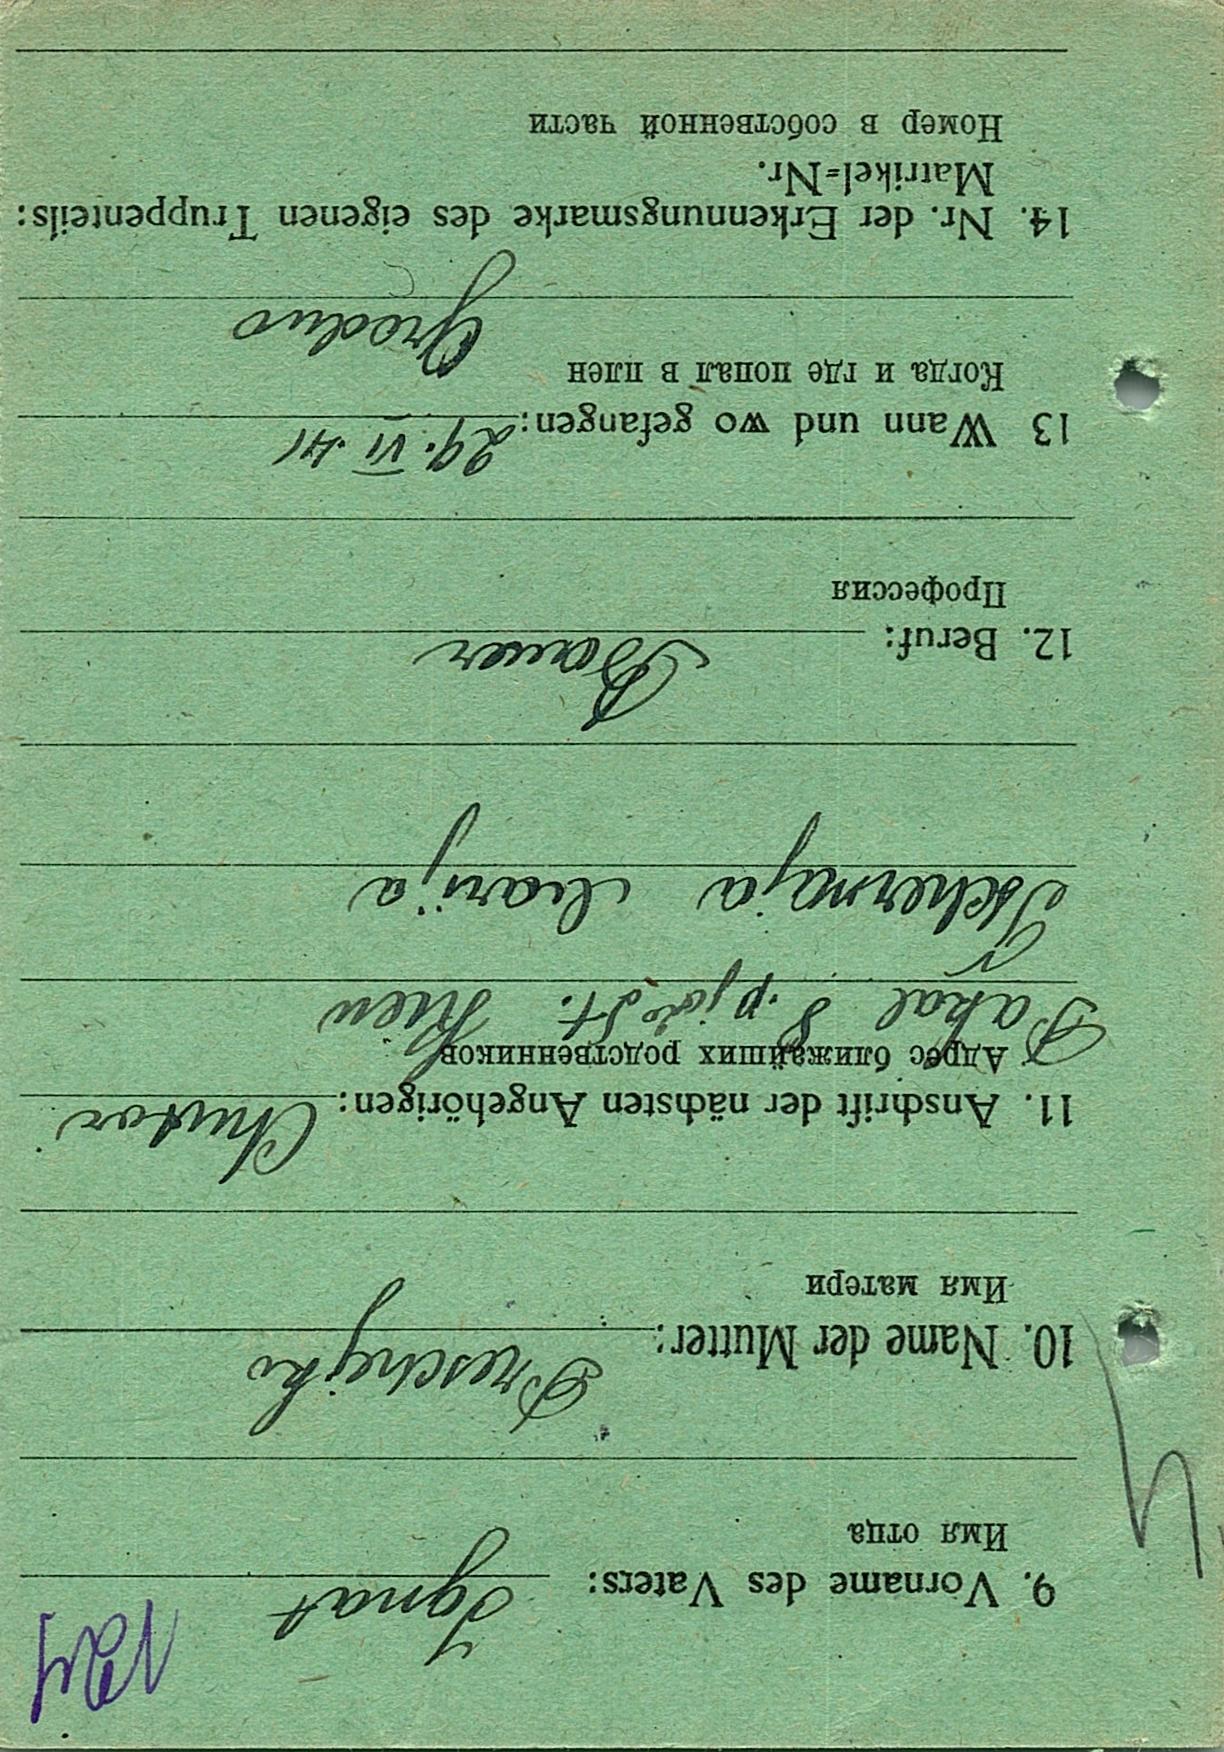 9. Vorname des Vaters: Ignat
Имя отца
10. Name der Mutter: Preschejko
Имя матери
11. Anschrift der nächsten Angehörigen: Chutor
Адрес ближайших родственников
Kiew
Tschernaja Marija
12. Beruf: Bauer
Профессия
13 Wann und wo gefangen: 29. VI. 41
Когда и где попал в плен
Grodno
14. Nr. der Erkennungsmarke des eigenen Truppenteils:
Matrikel=Nr.
Номер в собственной части